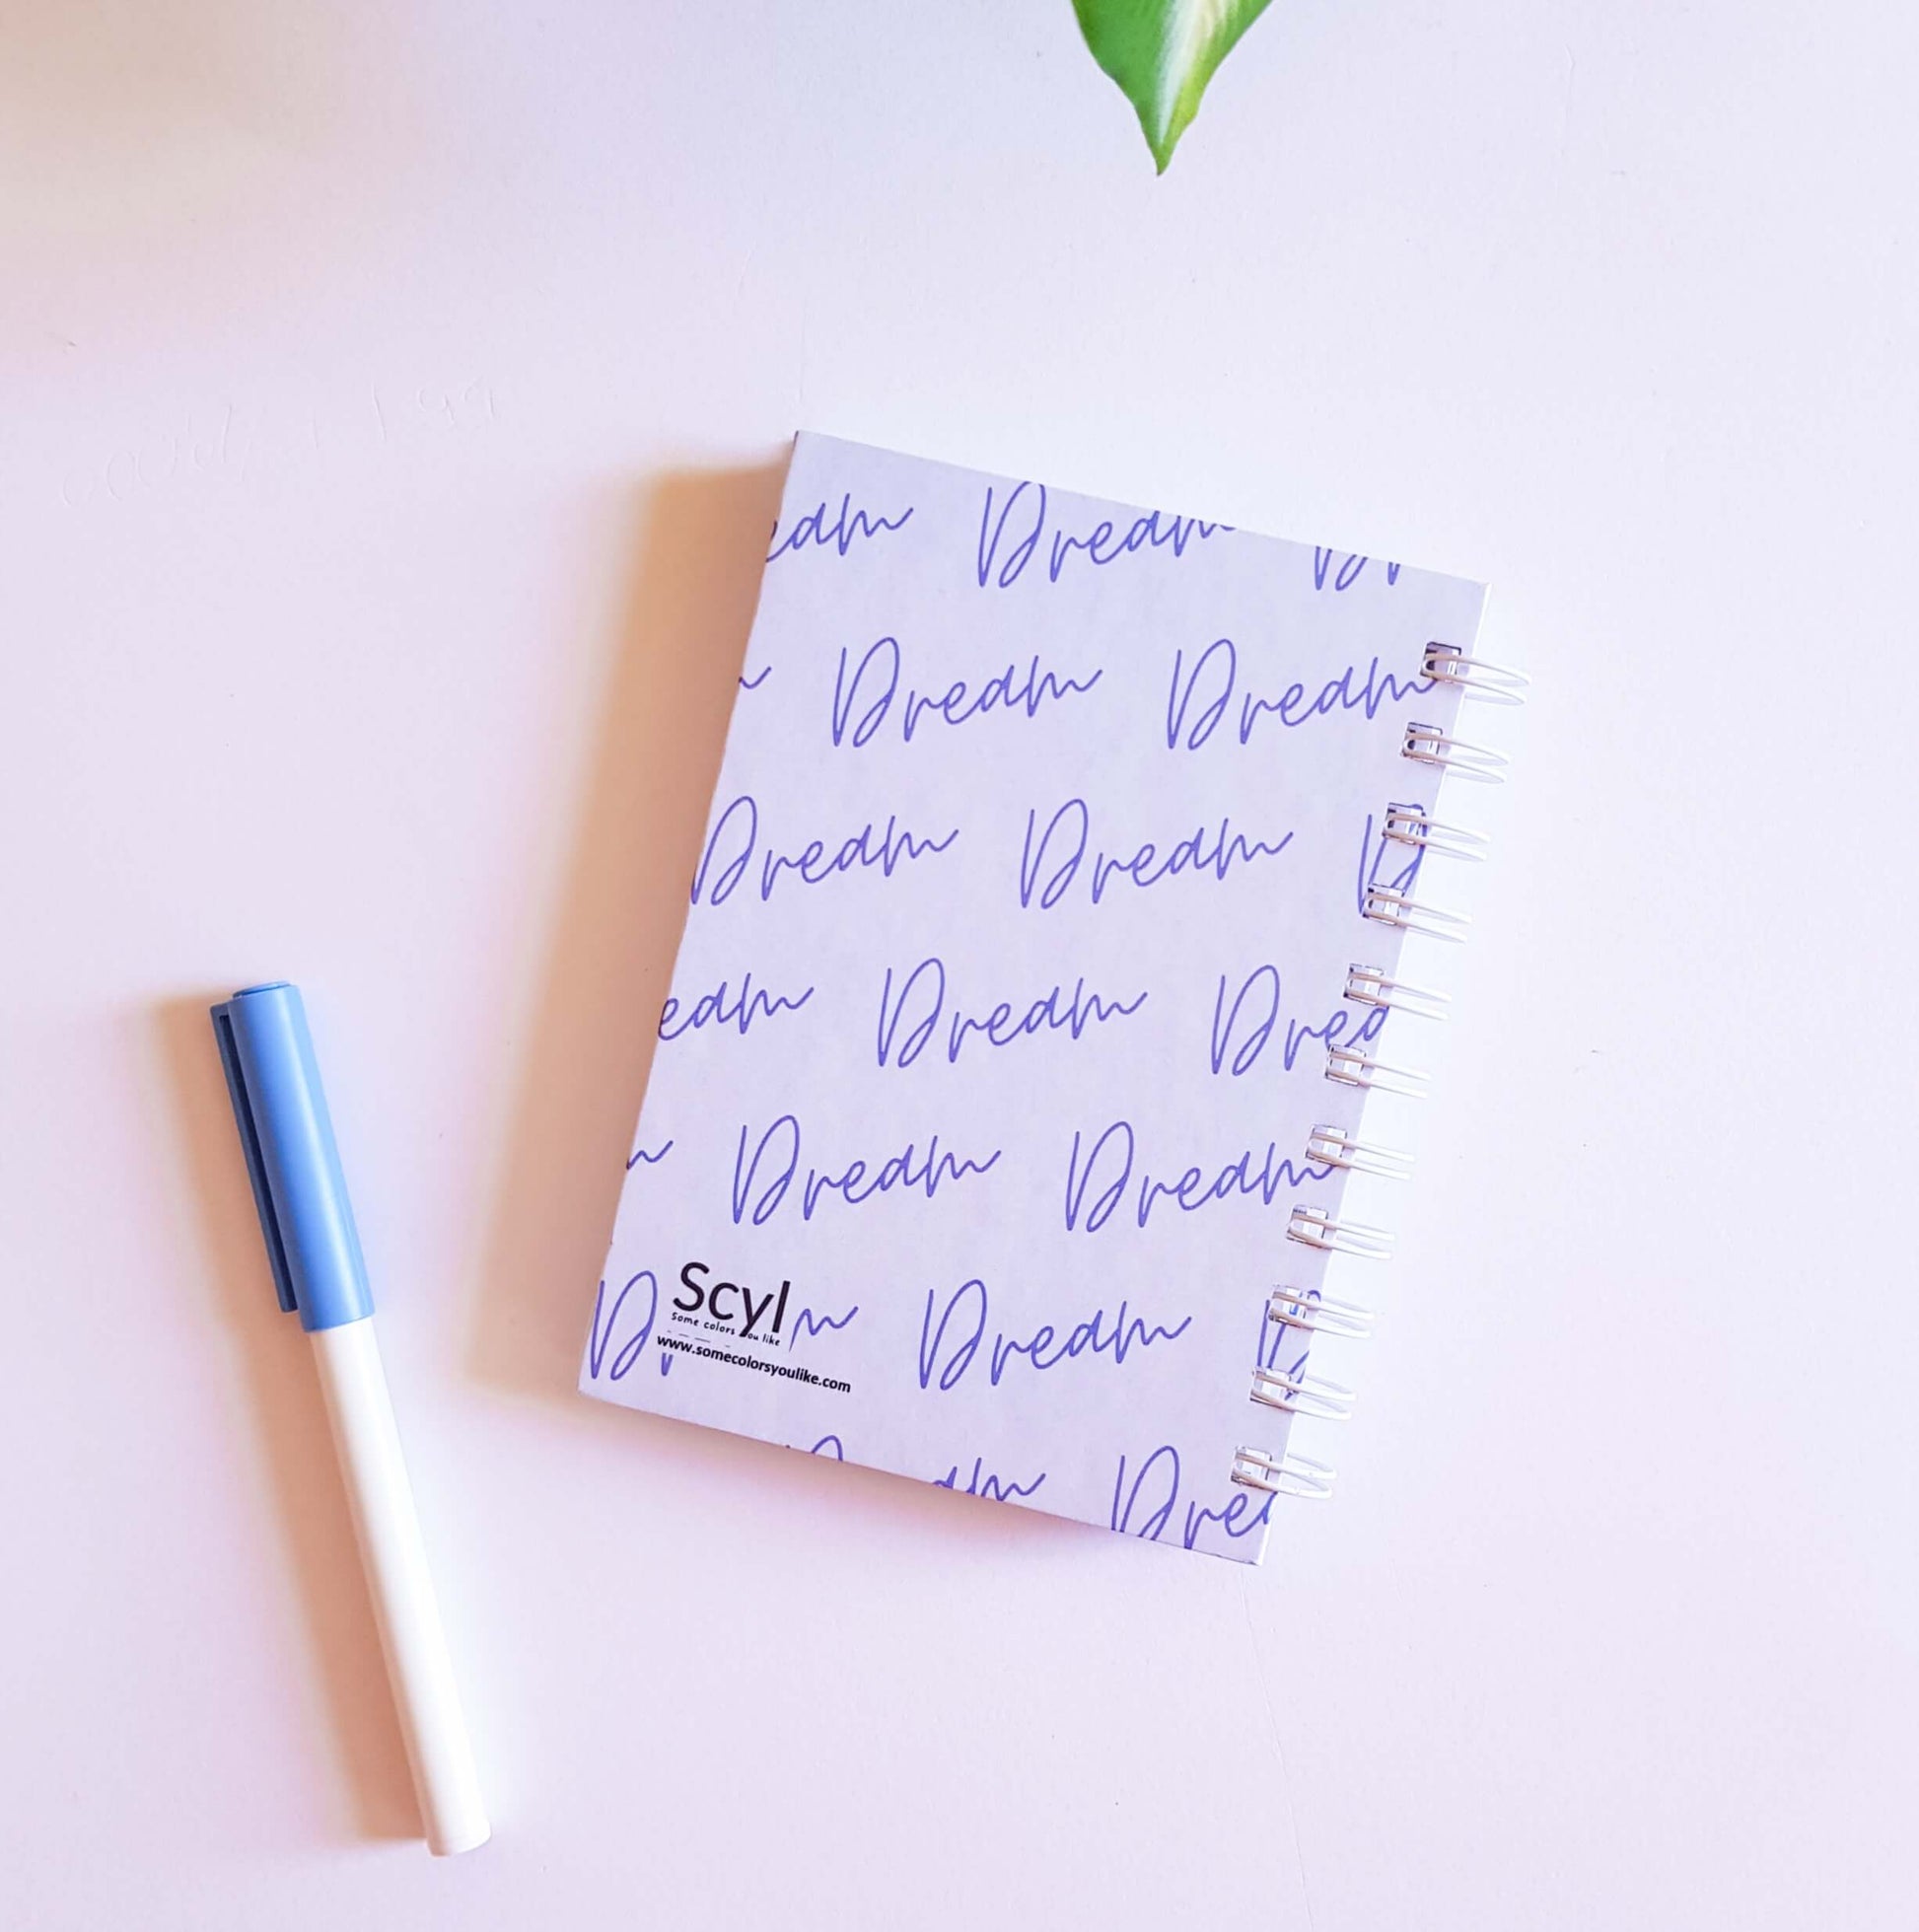 eam Dream Dr
Dream Dream
Dream Dream D
eam Dream Drea
Dream Dream
D Scyl m Dream D
Some colors you like
www.somecolorsyoulike.com
am Drea